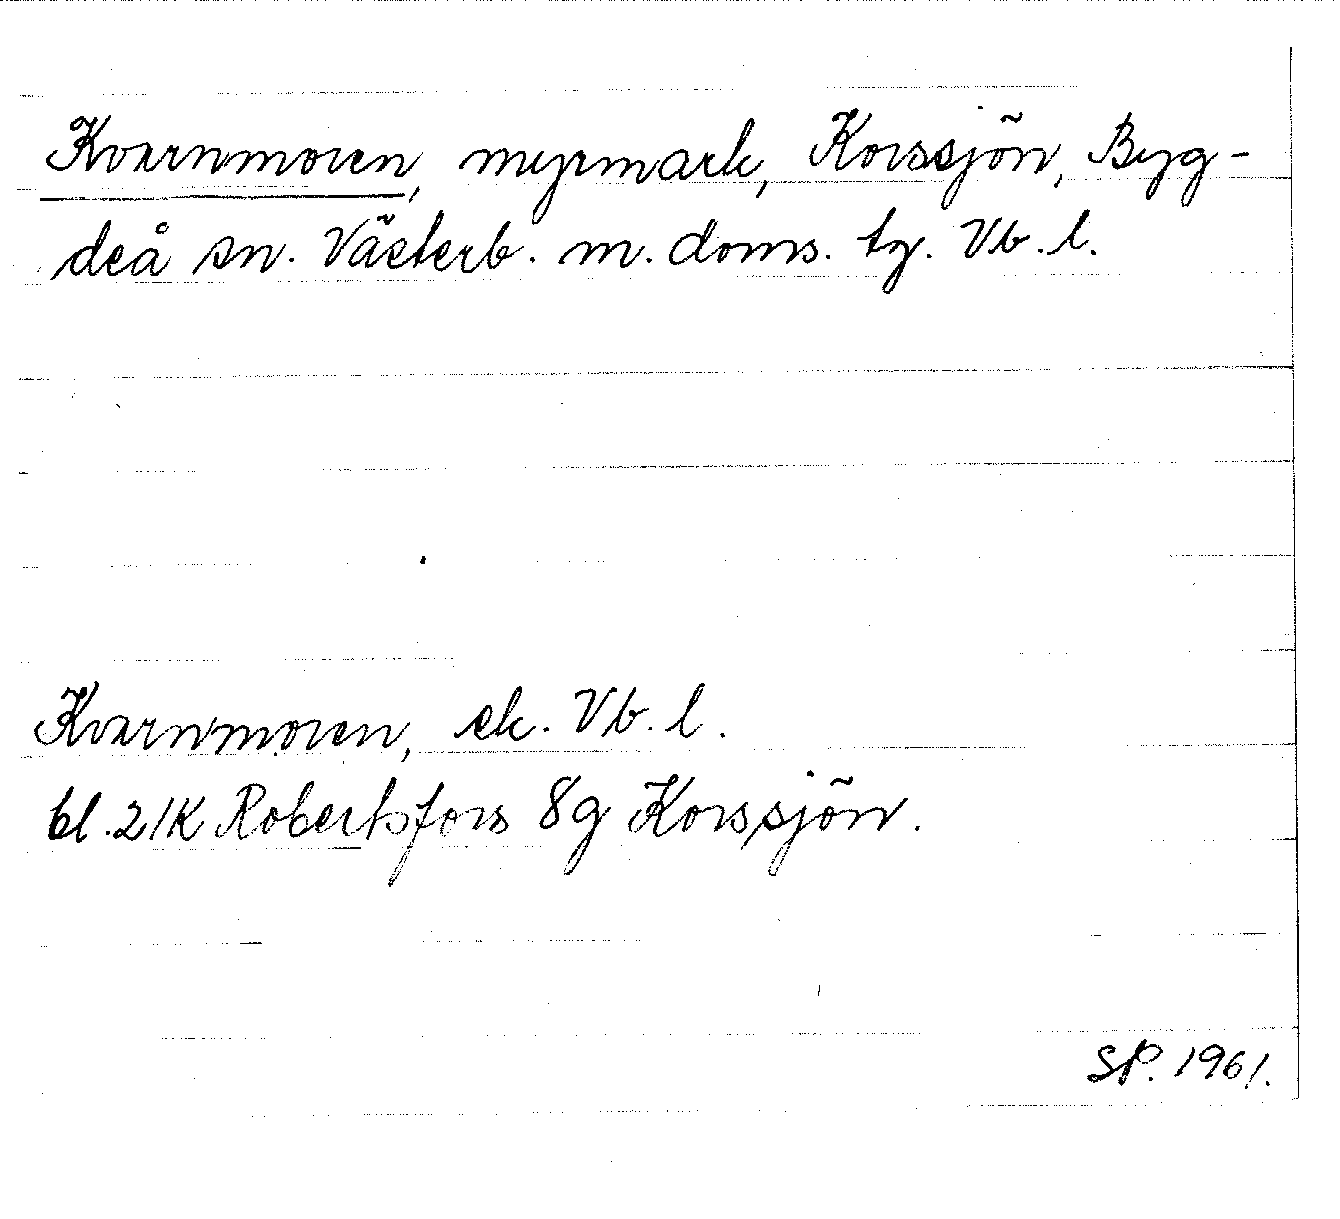 Kvarnmoren, myrmark, Korssjön, Byg-
deå sn. Västerb. m. doms. tg. Vb. l.
Kvarnmoren, ek. Vb. l.
bl. 21K Robertsfors 8g Korssjön.
SP. 1961.